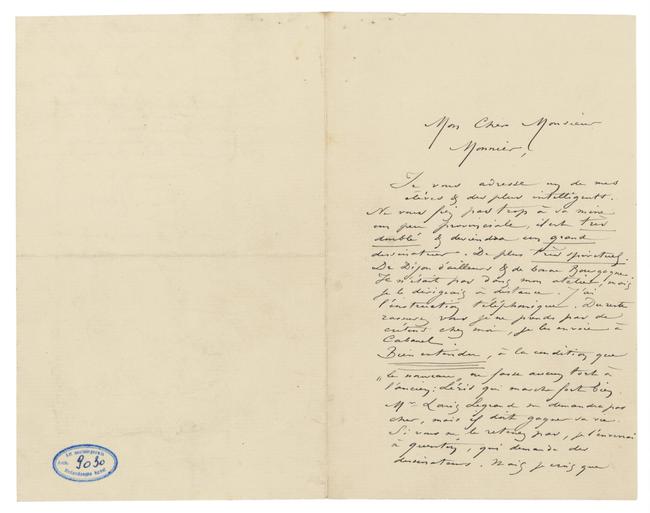 Mon Cher Monsieur
Monnier,
Je vous adresse un de mes
élèves & des plus intelligents.
Ne vous fiez pas trop à sa mine
un peu provinciale, il est très
doublé & deviendra un grand
dessinateur. De plus très spirituel.
De Dijon d'ailleurs & de bonne Bourgogne
Je n'étais pas dans mon atelier, mais
je le dirigeais à distance. J'ai
l'instruction téléphonique. Du reste
rassurez vous je ne prends pas de
crétins chez moi, je les envoie à
Cabanel.
Bien entendu, à la condition que
"le nouveau, ne fasse aucun tort à
l'ancien: qui marche fort bien.
Mr Louis Legrand ne demandera pas
cher, mais il doit gagner sa vie.
Si vous ne le retenez pas, je l'enverrai
à qui demande des
dessinateurs. Mais je crois que
9030